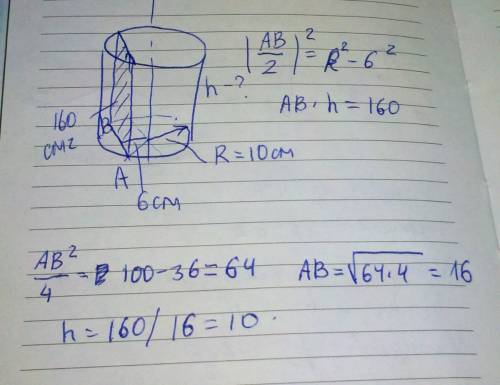 (AB/2)² = R² - 6²
h - ?
AB · h = 160
160
см²
B
R = 10 см
A
6 см
AB²/4 = 100 - 36 = 64
AB = √(64·4) = 16
h = 160 / 16 = 10 ·